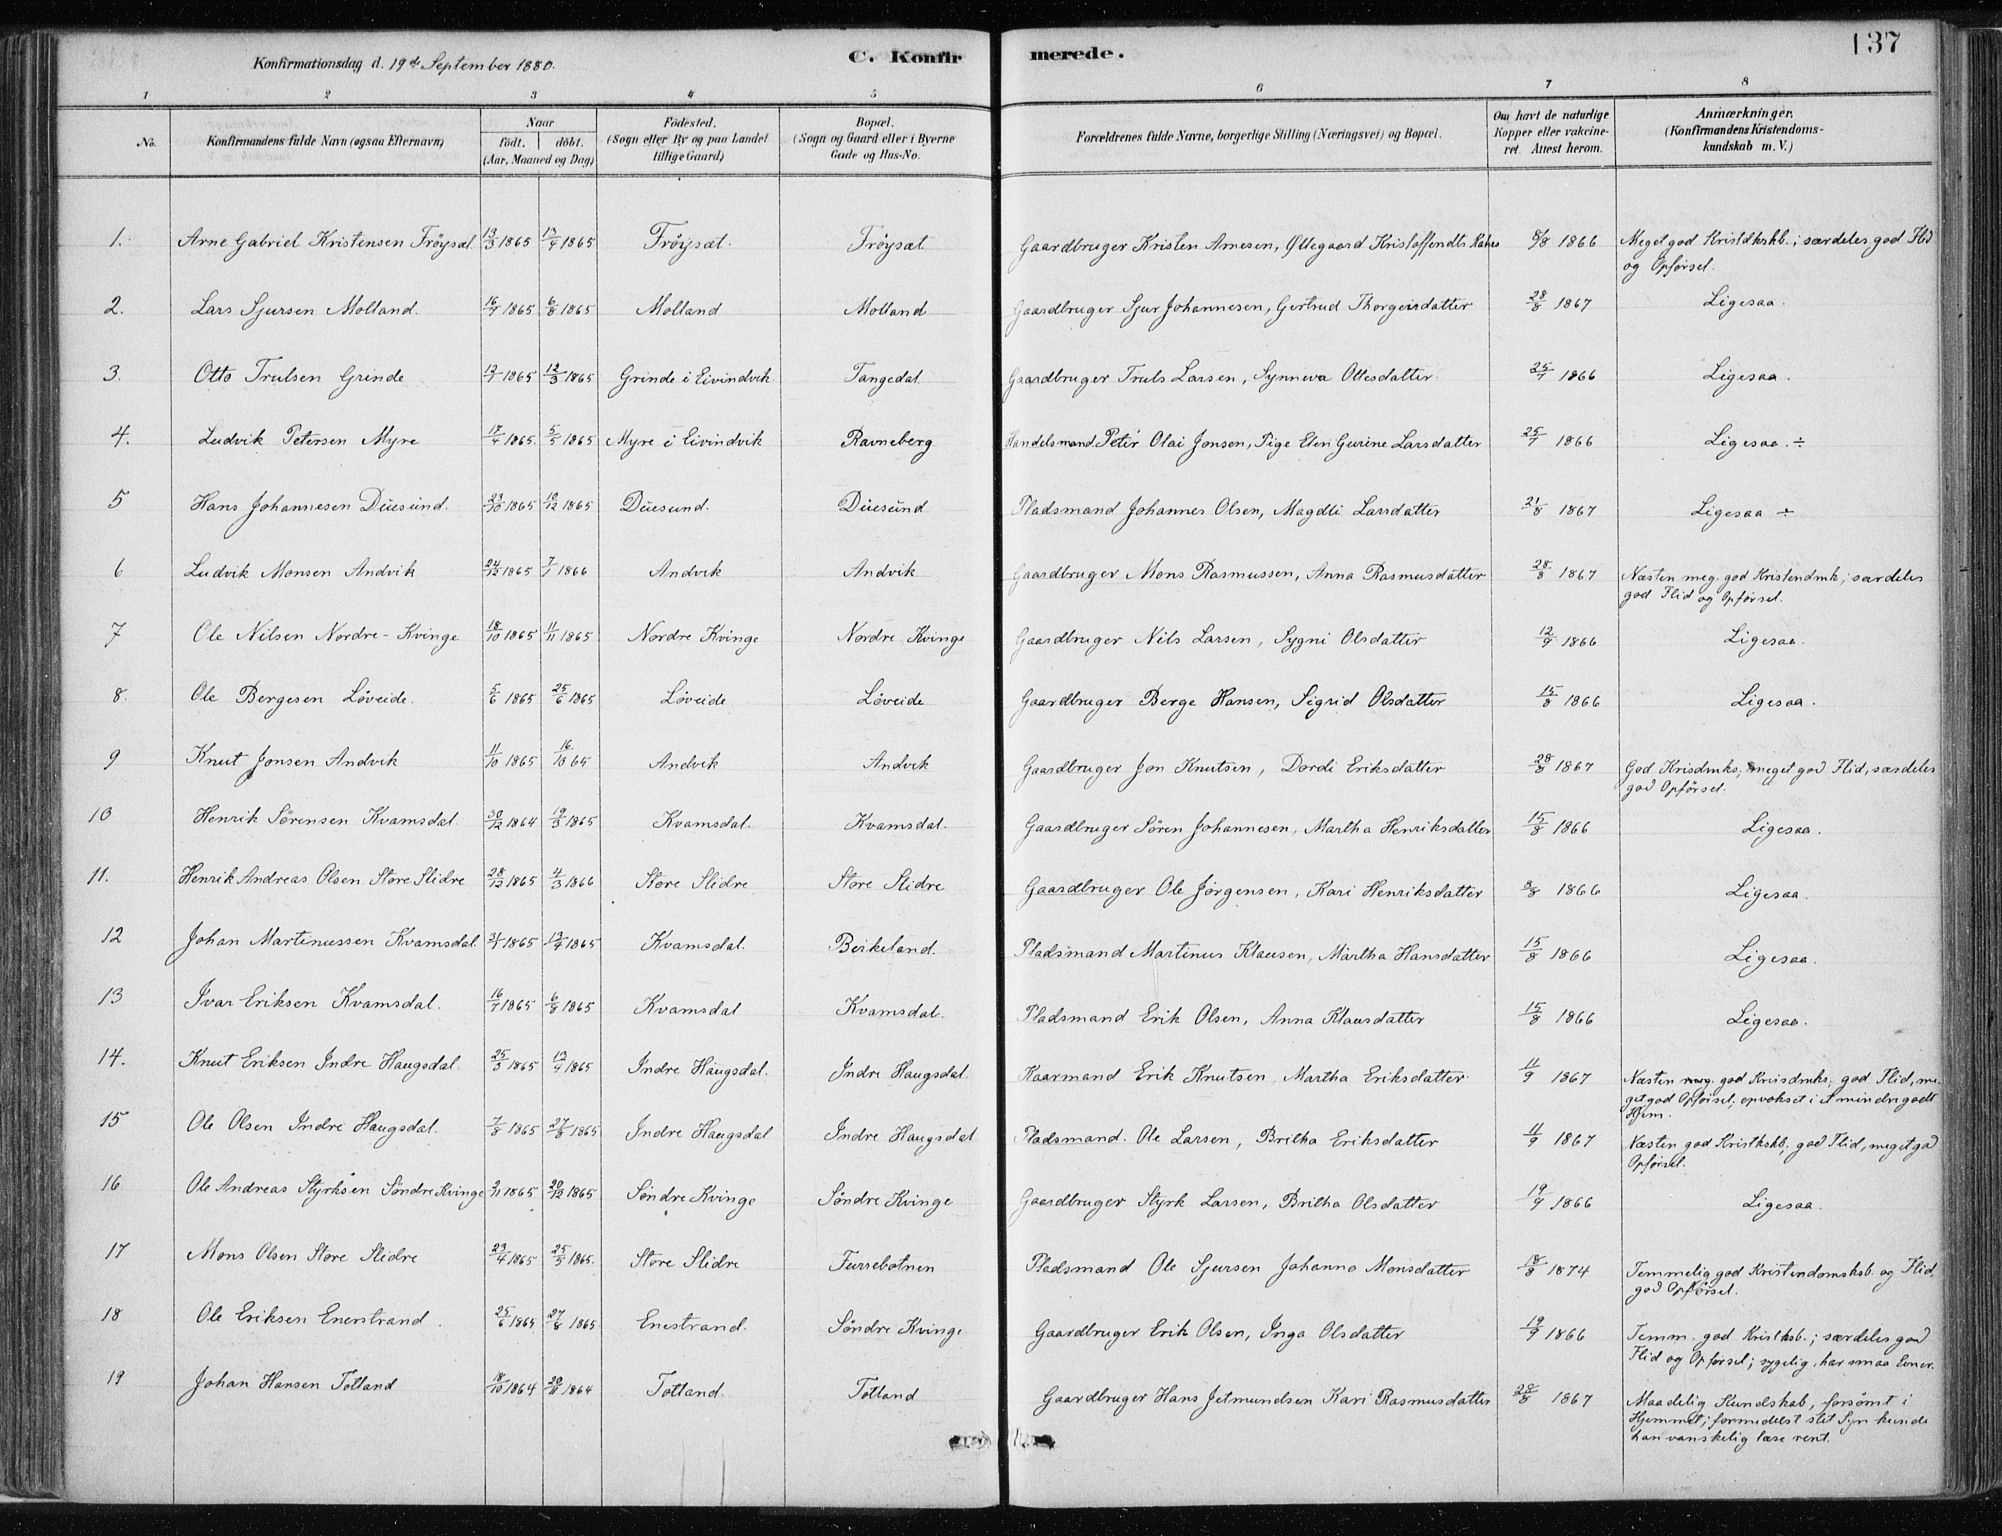 137
Konfirmationsdag d. 19de September 1880.
C. Konfirmerede.
1 2 3 4 5 6 7 8
No. Konfirmandens fulde Navn (ogsaa Efternavn) Naar födt. döbt. (Aar, Maaned og Dag) Födested. (Sogn eller By og paa Landet tillige Gaard) Bopæl. (Sogn og Gaard eller i Byerne Gade og Hus-No. Forældrenes fulde Navne, borgerlige Stilling (Næringsvei) og Bopæl. Om havt de naturlige Kopper eller vakcineret. Attest herom. Anmærkninger. (Konfirmandens Kristendomskundskab m. V.)
1. Arne Gabriel Kristensen Tröysæt 13/3 1865 17/4 1865 Tröysæt. Tröysæt Gaardbruger Kristen Arnesen, Øllegaard 8/8 1866 Meget god ; særdeles god Flid
og Opförsel.
2. Lars Sjursen Molland. 16/7 1865 6/8 1865 Molland Molland Gaardbruger Sjur Johannesen, Gertrud Thorgeirsdatter 28/8 1867 Ligesaa.
3. Otto Trulsen Grinde 1865 12/3 1865 Grinde i Eivindvik Tangedal Gaardbruger Truls Larsen, Synneva Ottesdatter. 25/7 1866 Ligesaa.
4. Ludvik Petersen Myre 17/4 1865. 5/5 1865 Myre i Eivindvik Ravneberg Handelsmand Peter Olai Jonsen, Pige Elen Gurine Larsdatter 25/7 1866 Ligesaa. ÷
5 Hans Johannesen Duesund. 23/10 1865 10/12 1865 Duesund. Duesund Pladsmand Johannes Olsen, Magdli Larsdatter 21/8 1867 Ligesaa ÷
6 Ludvik Monsen Andvik 24/12 1865 7/1 1866 Andvik Andvik Gaardbruger Mons Rasmussen, Anna Rasmusdatter 28/8 1867 Næsten meg. god Kristendmk; særdeles
god Flid og Opförsel.
7 Ole Nilsen Nordre-Kvinge 18/10 1865 11/11 1865 Nordre Kvinge Nordre Kvinge Gaardbruger Nils Larsen, Sygni Olsdatter 12/9 1866 Ligesaa.
8. Ole Bergesen Löveide. 5/6 1865 25/6 1865 Löveide Löveide Gaardbruger Berge Hansen, Sigrid Olsdatter 15/8 1866 Ligesaa.
9 Knut Jonsen Andvik 11/10 1865 16/10 65 Andvik Andvik Gaardbruger Jon Knutsen, Dordi Eriksdatter 28/8 1867 God Krisdmks; meget god Flid, særdeles
god Opförsel.
10 Henrik Sörensen Kvamsdal. 30/12 1864 19/3 1865 Kvamsdal. Kvamsdal. Gaardbruger Sören Johannesen, Martha Henriksdatter 15/8 1866 Ligesaa.
11. Henrik Andreas Olsen Store Slidre 28/12 1865 4/3 1866 Store Slidre Store Slidre Gaardbruger Ole Jörgensen, Kari Henriksdatter 8/8 1866 Ligesaa.
12 Johan Martinussen Kvamsdal 1865 1865 Kvamsdal. Birkeland. Pladsmand Martinus Klausen, Martha Hansdatter 15/8 1866 Ligesaa.
13 Ivar Eriksen Kvamsdal. 16/7 1865 6/8 1865 Kvamsdal Kvamsdal. Pladsmand Erik Olsen, Anna Klausdatter 15/8 1866 Ligesaa.
14. Knut Eriksen Indre Haugsdal. 25/3 1865 17/4 1865 Indre Haugsdal. Indre Haugsdal Kaarmand Erik Knutsen Martha Eriksdatter 11/9 1867 Næsten meg. god Krisdmks; god Flid, me-
get god Opförsel; opvokset i et mindre godt
Hjem.
15 Ole Olsen Indre Haugsdal. 7/8 1865 27/8 1865 Indre Haugsdal Indre Haugsdal Pladsmand. Ole Larsen, Britha Eriksdatter 11/9 1867 Næsten god Kristkskb; god Flid, meget god
Opförsel.
16 Ole Andreas Styrksen Söndre Kvinge 2/11 1865 20/12 1865 Söndre Kvinge Söndre Kvinge Gaardbruger Styrk Larsen, Britha Olsdatter 19/9 1866 Ligesaa.
17 Mons Olsen Store Slidre 23/4 1865 25/5 1865. Store Slidre Furrebotnen Pladsmand Ole Sjursen Johanna Monsdatter 18/8 1874 Temmelig god Kristendomskb. og Flid,
god Opförsel.
18 Ole Eriksen Enerstrand. 25/6 1865 27/8 1865 Enestrand. Söndre Kvinge Gaardbruger Erik Olsen, Inga Olsdatter 19/9 1866 Temm. god Kristksb.; særdeles god
Flid og Opförsel; sygelig, har smaa Evner.
19 Johan Hansen Totland 18/10 1864 20/11 1864 Totland. Totland Gaardbruger Hans Jetmundsen Kari Rasmusdatter 28/8 1867 Maadelig Kundskab, forsömt i
Hjemmet; formedelst slet Syn kunde
han vanskelig læse rent.